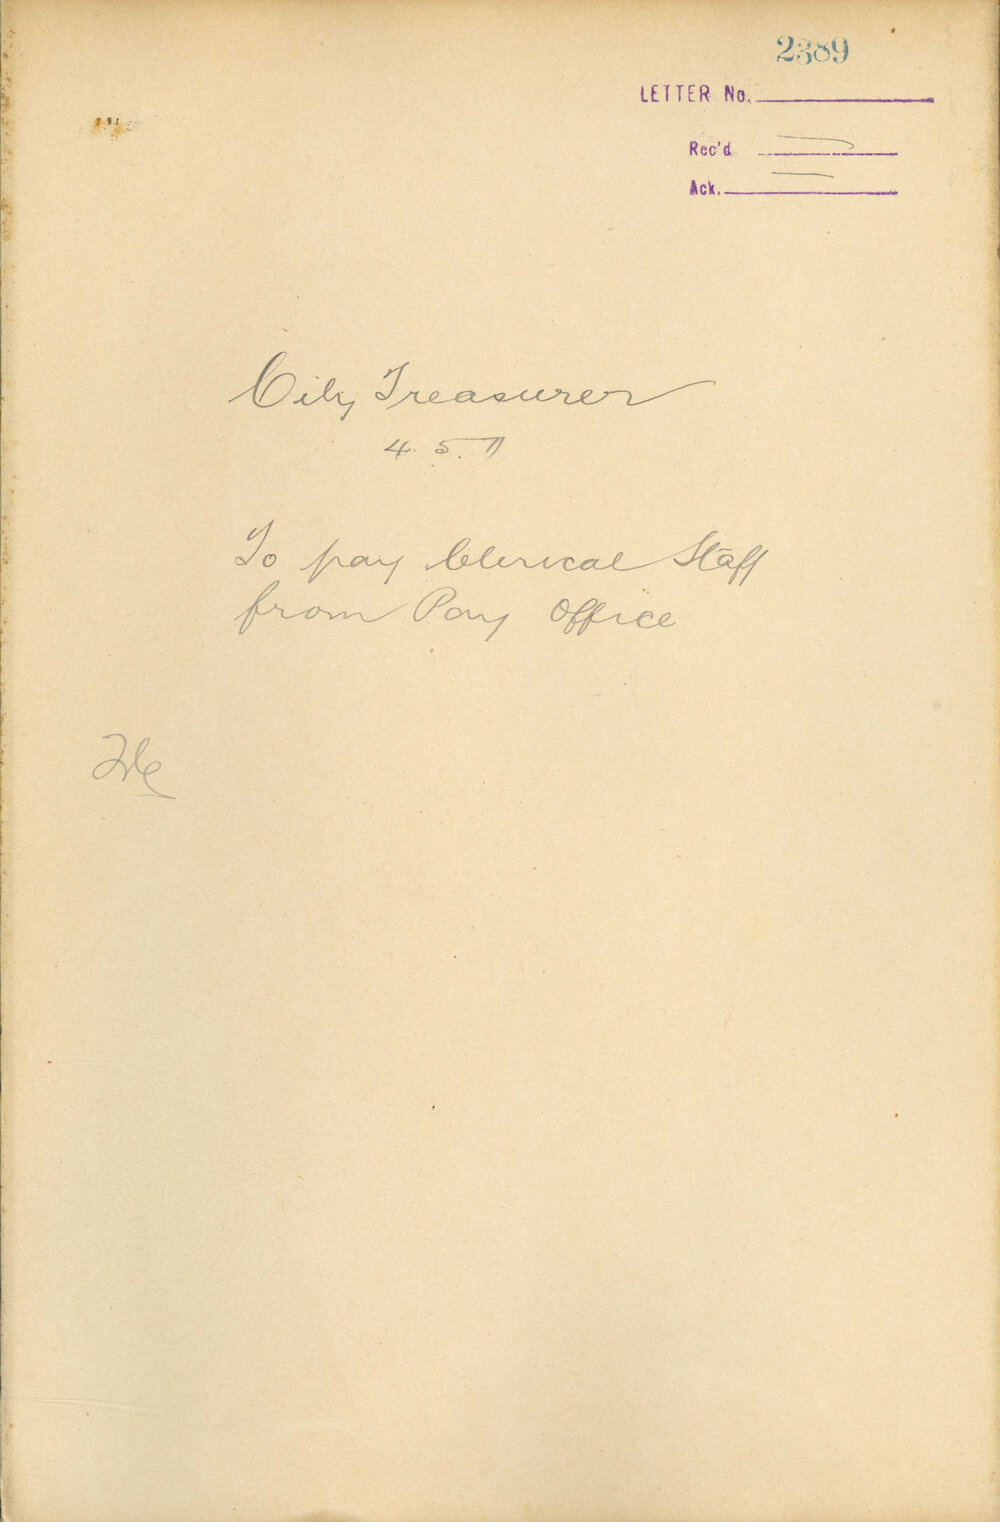 2389
LETTER No.
Rec'd
Ack.
City Treasurer
4. 5. 11
To pay Clerical Staff
from Pay Office